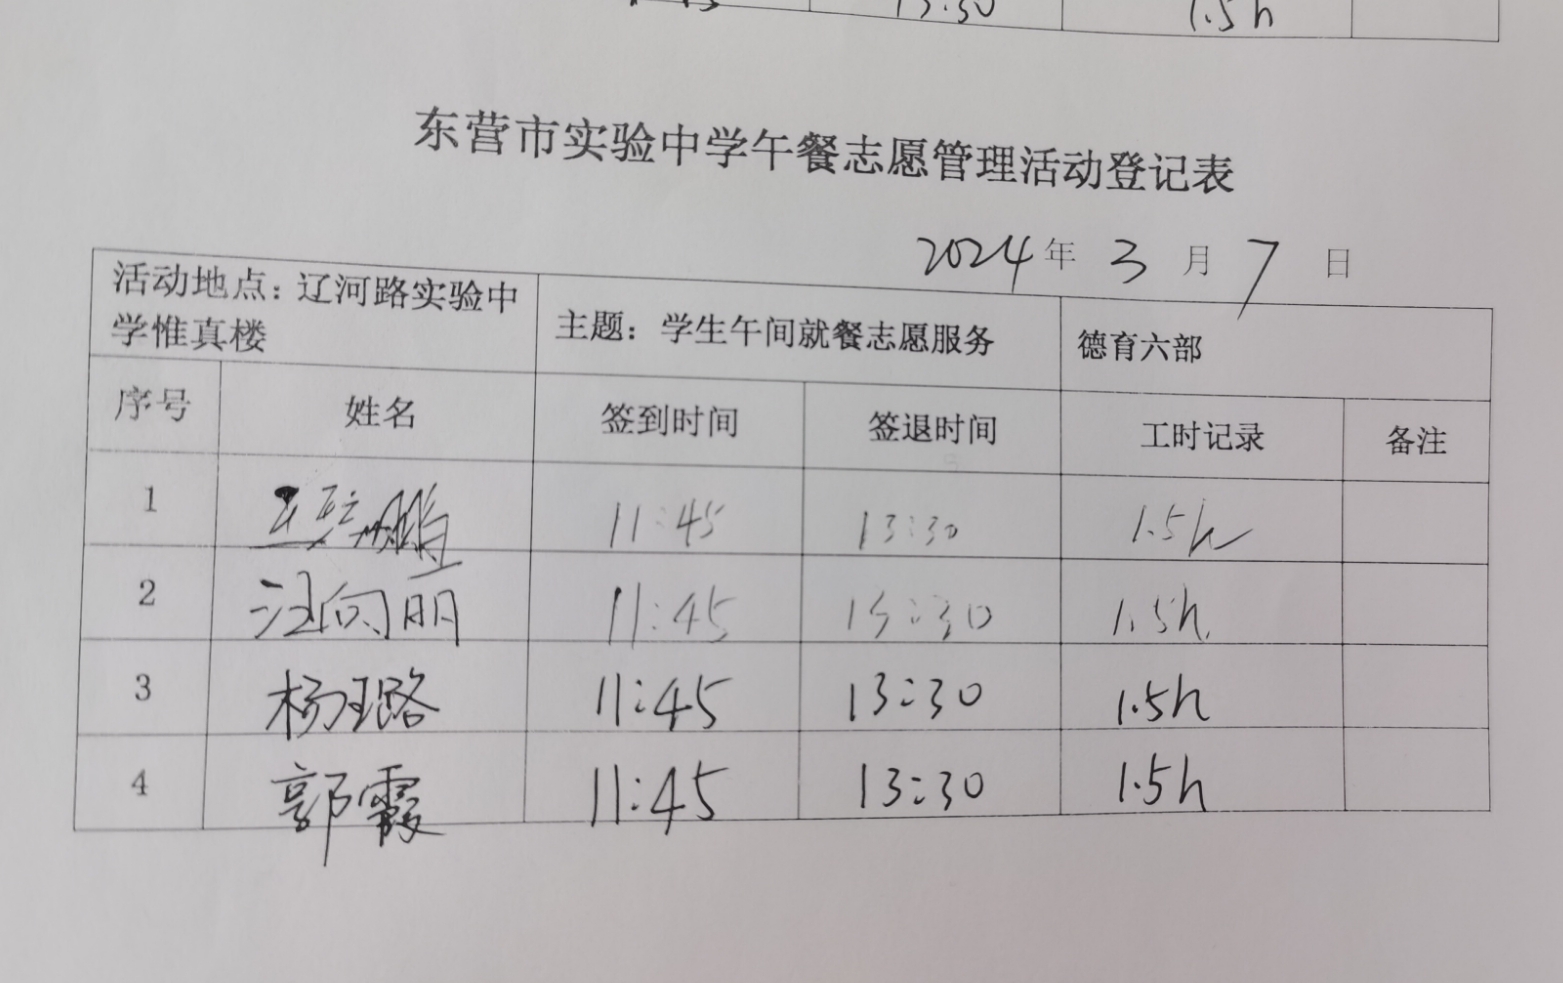 13:30 1.5h
东营市实验中学午餐志愿管理活动登记表
2024年 3 月 7 日
活动地点：辽河路实验中
学惟真楼
主题：学生午间就餐志愿服务
德育六部
序号 姓名 签到时间 签退时间 工时记录 备注
1 11:45 13:30 1.5h
2 汪向丽 11:45 13:30 1.5h
3 杨璐 11:45 13:30 1.5h
4 郭霞 11:45 13:30 1.5h